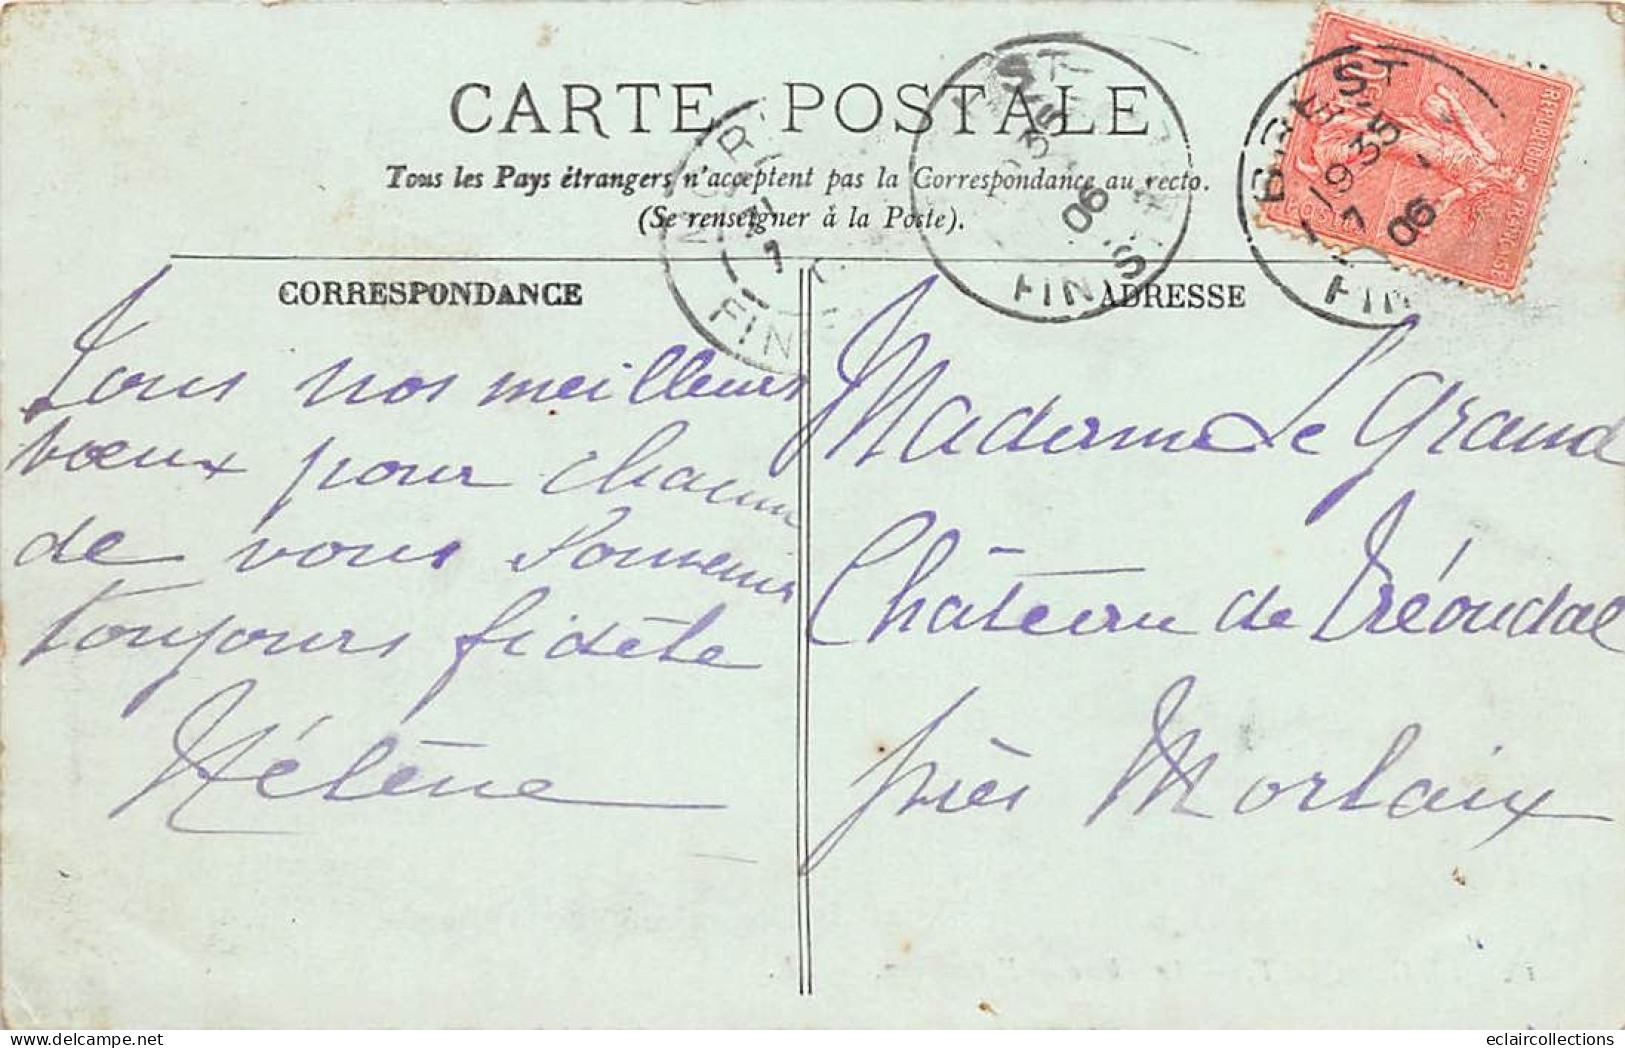 CARTE POSTALE
Tous les Pays étrangers n'acceptent pas la Correspondance au recto.
(Se renseigner à la Poste).
CORRESPONDANCE
Tous nos meilleurs
vœux pour chacun
de vous Souvenir
toujours fidèle
Hélène
ADRESSE
Madame Le Grand
Château de Tréoudal
près Morlaix
BREST
19 35
06
FINIS
10c
REPUBLIQUE FRANÇAISE
POSTES
eclaircollections